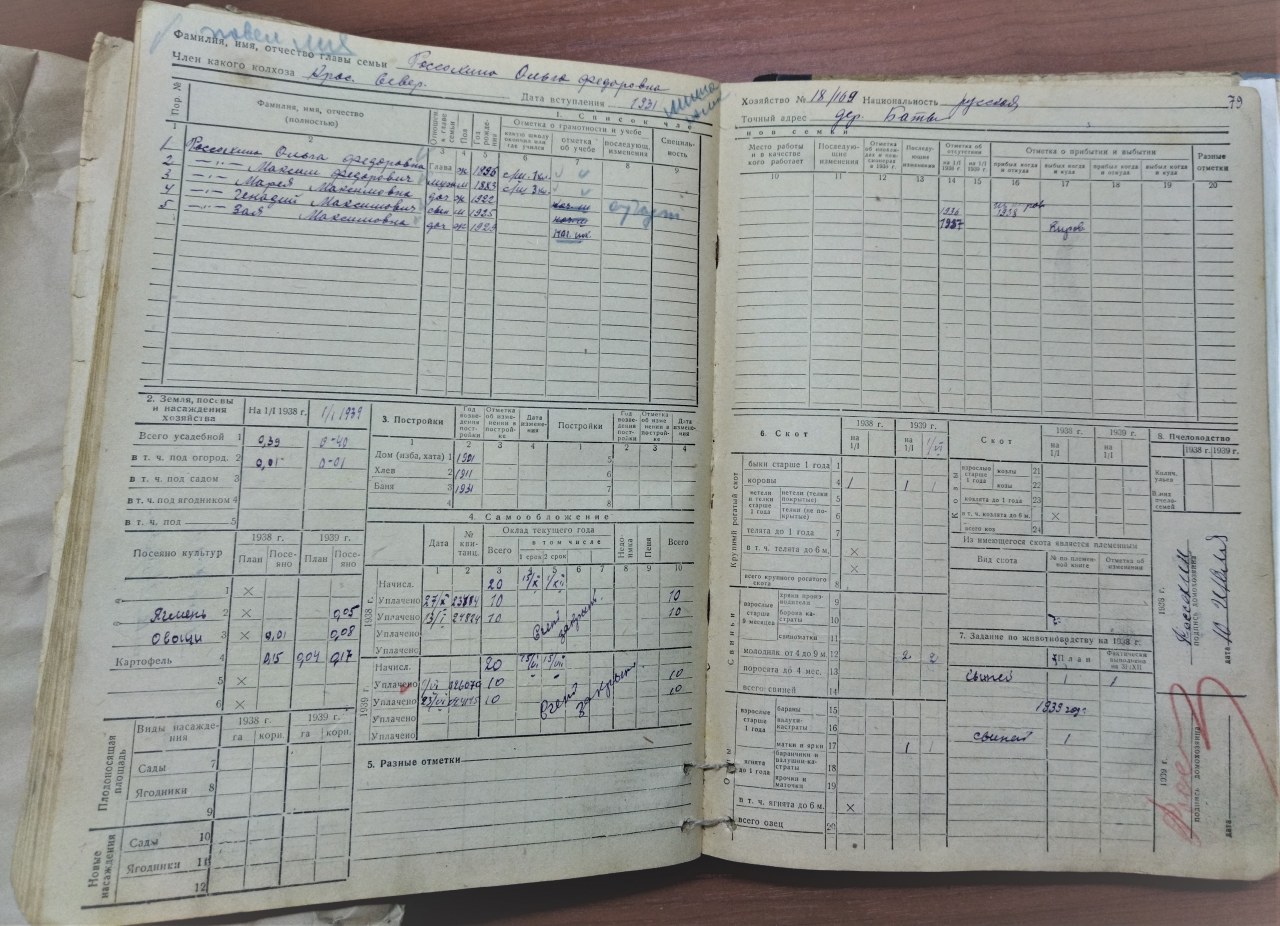 Фамилия, имя, отчество главы семьи Россохина Ольга Федоровна
Член какого колхоза Крас. Север. Дата вступления 1931
1. Список чле
Пор. № Фамилия, имя, отчество (полностью) Пол Год рождения Отметка о грамотности и учебе отметка об учебе последующ. изменения Специальность
1 2 3 4 5 6 7 8 9
1 Россохина Ольга Федоровна Глава ж 1896
2 —„— Максим Федорович муж м 1889
3 —„— Мария Максимовна доч ж 1922
4 —„— Генадий Максимович сын м 1925
5 Зоя Максимовна доч ж 1929
2. Земля, посевы и насаждения хозяйства На 1/I 1938 г. 1/I 1939
Всего усадебной 1 0,39 0-40
в т. ч. под огород. 2 0,01 0-01
в т. ч. под садом 3
в т. ч. под ягодником 4
в т. ч. под 5
Посеяно культур 1938 г. 1939 г.
План Посеяно План Посеяно
1 ×
Ячмень 2 × 0,05
Овощи 3 × 0,01 0,08
Картофель 4 0,15 0,04 0,17
5 ×
6 ×
Плодоносящая площадь Виды насаждения 1938 г. 1939 г.
га корн. га корн.
Сады 7
Ягодники 8
9
Новые насаждения
Сады 10
Ягодники 11
12
3. Постройки Год возведения постройки Отметка об изменении в постройке Дата изменения Постройки Год возведения постройки Отметка об изменении в постройке Дата изменения
1 2 3 4 1 2 3 4
Дом (изба, хата) 1 1901 5
Хлев 2 1911 6
Баня 3 1931 7
4 8
4. Самообложение
Дата № квитанц. Оклад текущего года Недоимка Пени Всего
Всего в том числе
1 срок 2 срок
1 2 3 4 5 6 7 8 9 10
1938 г.
Начисл. 20
Уплачено 10 10
Уплачено 10 10
Уплачено Счет закрыт.
Уплачено
1939 г.
Начисл. 20
Уплачено 10 10
Уплачено 10 10
Уплачено Счет закрыт.
Уплачено
5. Разные отметки
Хозяйство № 18/169 Национальность русская 79
Точный адрес дер. Баты
нов семьи
Место работы и в качестве кого работает Последующие изменения Последующие изменения Отметка об отсутствии Отметка о прибытии и выбытии Разные отметки
на 1/I 1938 г. на 1/I 1939 г. прибыл когда и откуда выбыл когда и куда прибыл когда и откуда выбыл когда и куда
10 11 12 13 14 15 16 17 18 19 20
1936 1938
1937 Киров
6. Скот 1938 г. 1939 г.
на 1/I на 1/I
Крупный рогатый скот
быки старше 1 года 1
коровы 4 1 1 1
нетели и телки старше 1 года нетели (телки покрытые) 5
телки (не покрытые) 6
телята до 1 года 7
в т. ч. телята до 6 м. ×
всего крупного рогатого скота 8
Свиньи
взрослые старше 9 месяцев хряки производители 9
борова кастраты 10
свиноматки 11
молодняк от 4 до 9 м. 12 2 2
поросята до 4 мес. 13
всего свиней 14
Овцы
взрослые старше 1 года бараны 15
валухи-кастраты 16
матки и ярки 17 1 1
ягнята до 1 года баранчики и валушки-кастраты 18
ярочки и маточки 19
в т. ч. ягнята до 6 м. ×
всего овец 20
Скот 1938 г. 1939 г.
на 1/I на 1/I
Козы
взрослые старше 1 года козлы 21
козы 22
козлята до 1 года 23
в т. ч. козлята до 6 м. ×
всего коз 24
Из имеющегося скота является племенным
Вид скота № по племенной книге Отметка об изменении
7. Задание по животноводству на 1938 г.
План Фактически выполнено на 31/XII
свиней 1 1
1939 год.
свиней 1
8. Пчеловодство
1938 г. 1939 г.
Колич. ульев
В них пчелосемей
1939 г. подпись домохозяина
дата 10 июля
1939 г. подпись домохозяина
дата